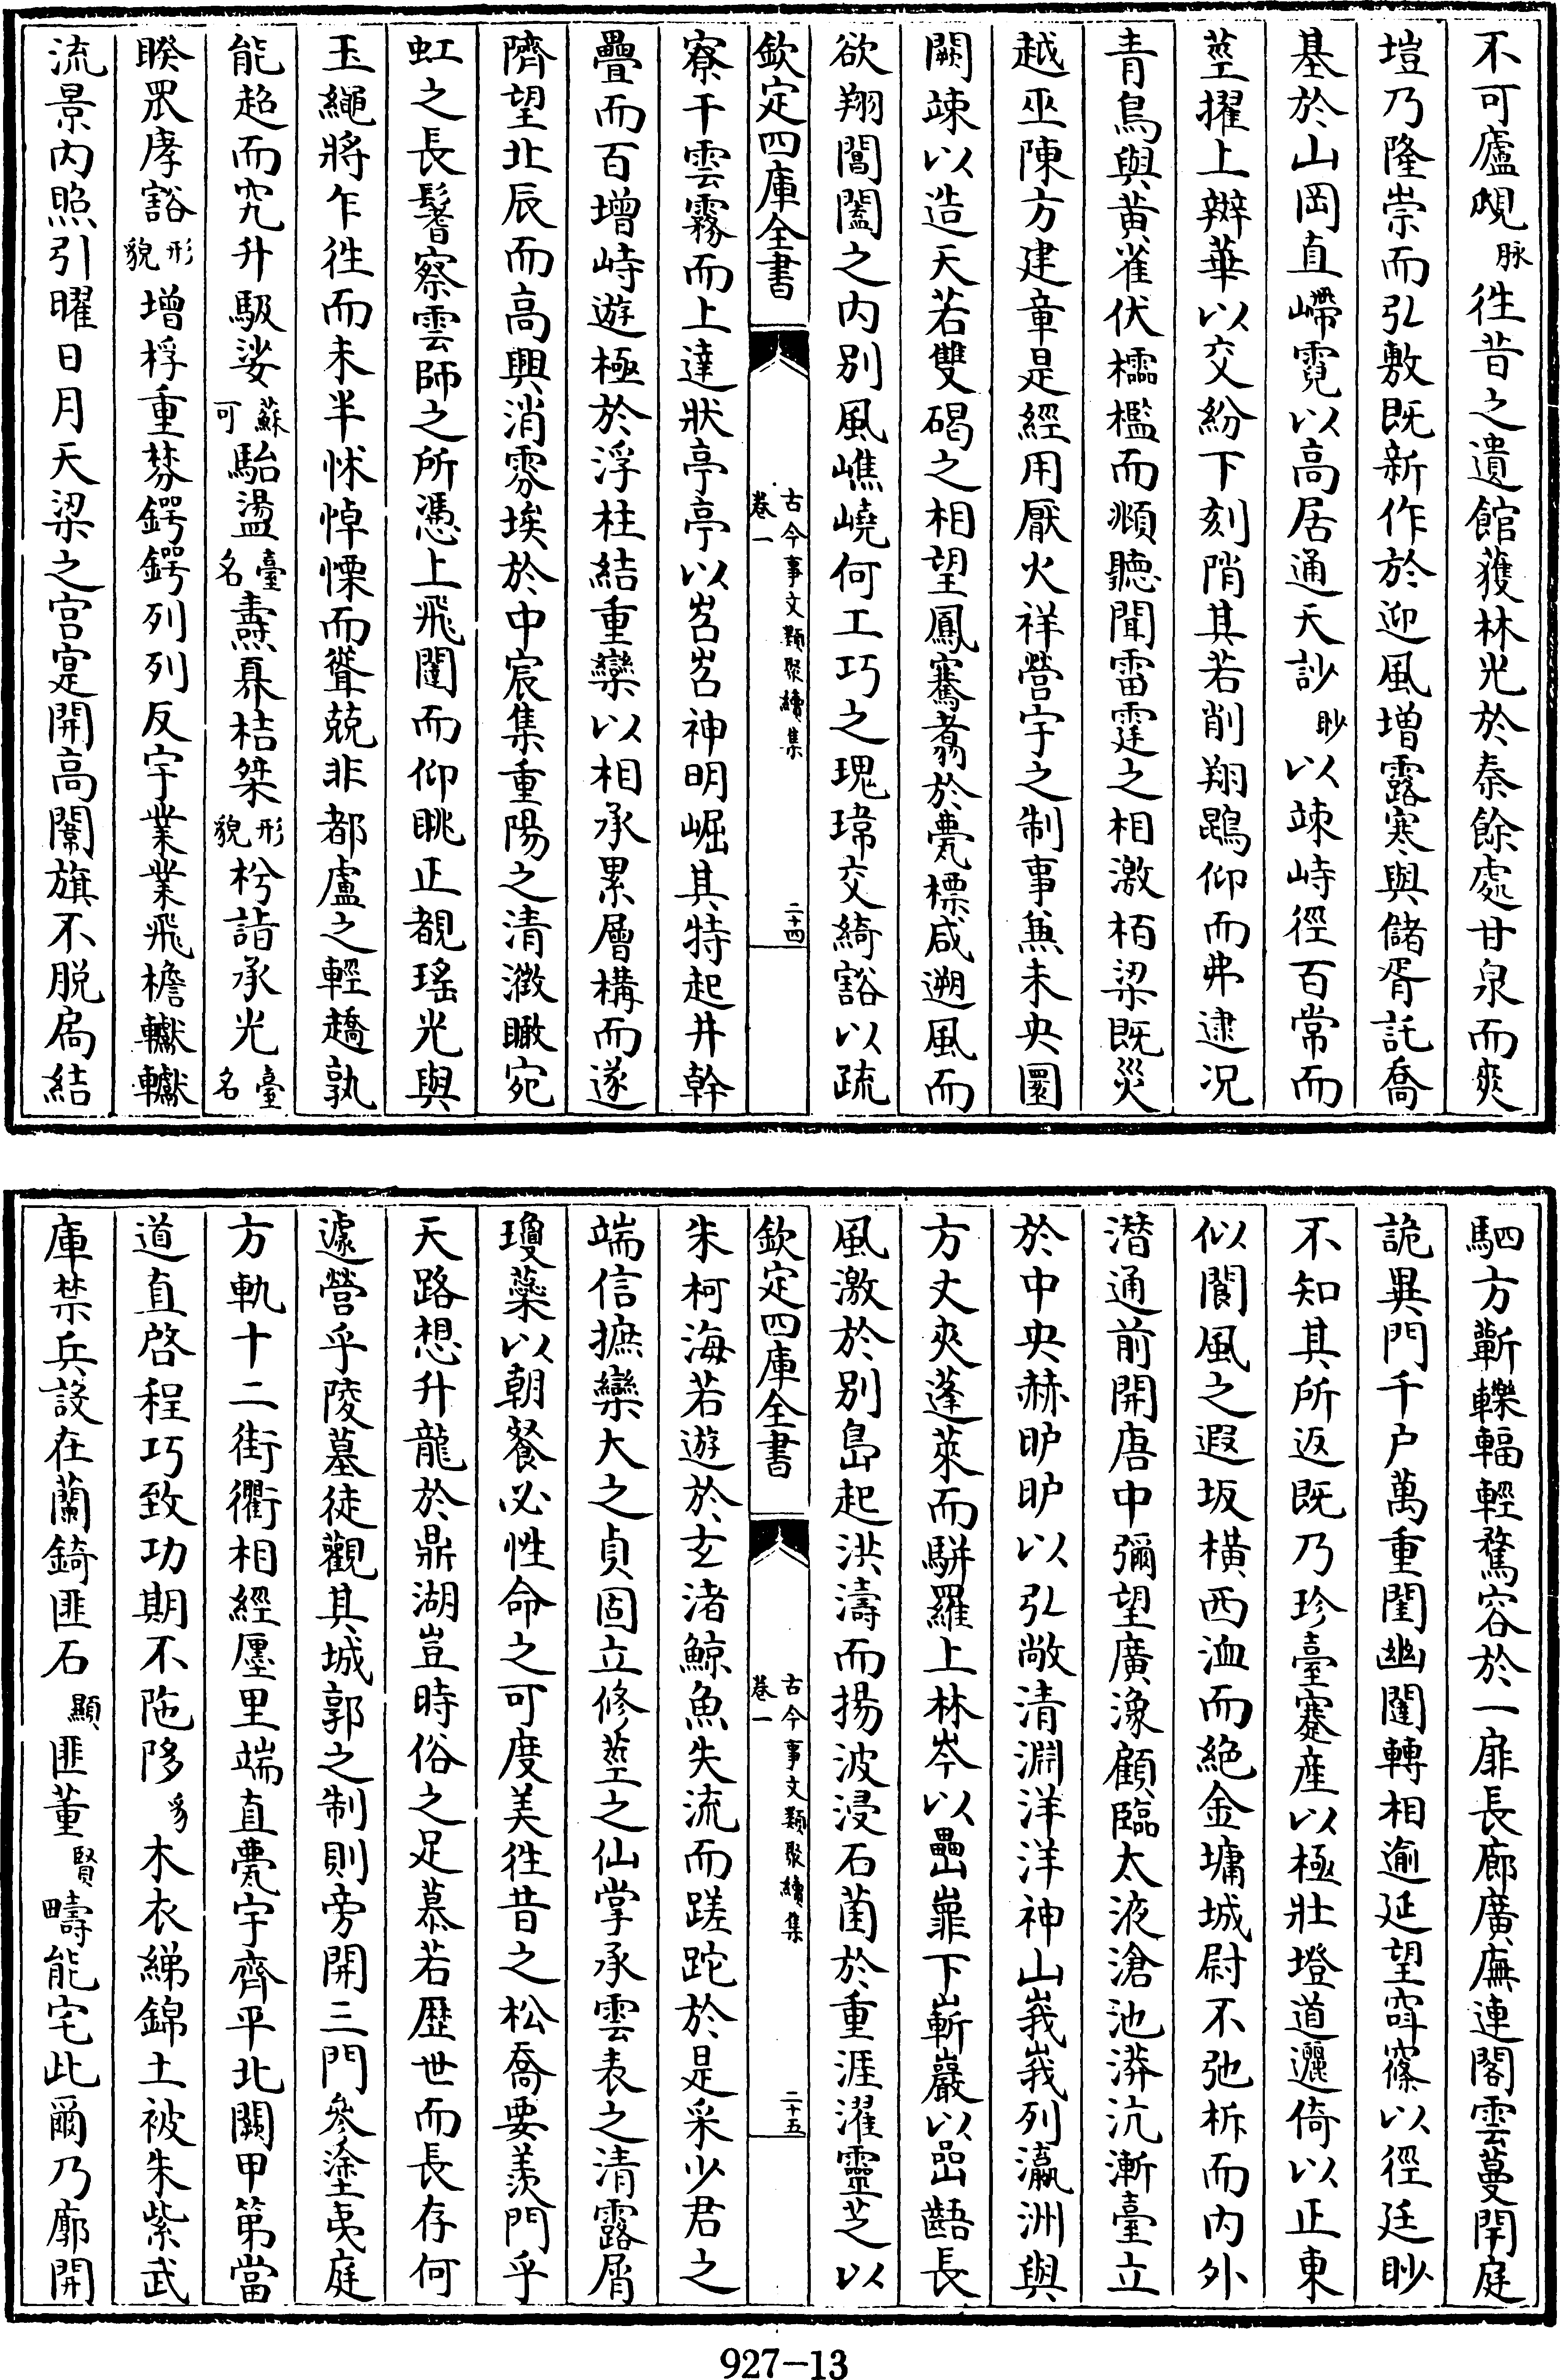 不可廬覛脉徃昔之遺館獲林光於秦餘處甘泉而爽
塏乃隆崇而弘敷既新作於迎風增露寒與儲胥託喬
基於山岡直嵽霓以高居通天訬眇以竦峙徑百常而
莖擢上辬華以交紛下刻陗其若削翔鶤仰而弗逮况
青鳥與黃雀伏櫺檻而頫聽聞雷霆之相激栢梁既災
越巫陳方建章是經用厭火祥營宇之制事兼未央圜
闕竦以造天若雙碣之相望鳳騫翥於甍標咸遡風而
欲翔閶闔之内别風嶕嶢何工巧之瑰瑋交綺豁以疏
欽定四庫全書
古今事文類聚續集
卷一
二十四
寮干雲霧而上達狀亭亭以岧岧神明崛其特起井幹
疊而百增峙遊極於浮柱結重欒以相承累層構而遂
隮望北辰而高興消雰埃於中宸集重陽之清澂瞰宛
虹之長鬐察雲師之所憑上飛闥而仰眺正覩瑤光與
玉繩將乍徃而未半怵悼慄而聳兢非都盧之輕趫孰
能超而究升馺娑蘇可駘盪臺名燾奡桔桀形貌枍詣承光臺名
睽罛庨豁形貌增桴重棼鍔鍔列列反宇業業飛檐轥轥
流景内照引曜日月天梁之宫寔開高闈旗不脱扃結
駟方蘄轢輻輕騖容於一扉長廊廣廡連閣雲蔓閈庭
詭異門千户萬重閨幽闥轉相逾延望䆗窱以徑廷眇
不知其所返既乃珍臺蹇產以極壯墱道邐倚以正東
似閬風之遐坂橫西洫而絶金墉城尉不弛柝而内外
潜通前開唐中彌望廣潒顧臨太液滄池漭沆漸臺立
於中央赫昈昈以弘敞清淵洋洋神山峩峩列瀛洲與
方丈夾蓬萊而駢羅上林岑以壘嶵下嶄巖以嵒齬長
風激於别島起洪濤而揚波浸石菌於重涯濯靈芝以
欽定四庫全書
古今事文類聚續集
卷一
二十五
朱柯海若遊於玄渚鯨魚失流而蹉跎於是采少君之
端信摭欒大之貞固立修莖之仙掌承雲表之清露屑
瓊蘂以朝餐必性命之可度美徃昔之松喬要羨門乎
天路想升龍於鼎湖豈時俗之足慕若歴世而長存何
遽營乎陵墓徒觀其城郭之制則旁開三門參塗夷庭
方軌十二街衢相經廛里端直甍宇齊平北闕甲第當
道直啓程巧致功期不阤陊豸木衣綈錦土被朱紫武
庫禁兵設在蘭錡匪石顯匪董賢疇能宅此爾乃廓開
927-13